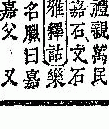 禮親萬民
嘉石文石
雅釋詁樂
名臘曰嘉
嘉父　又